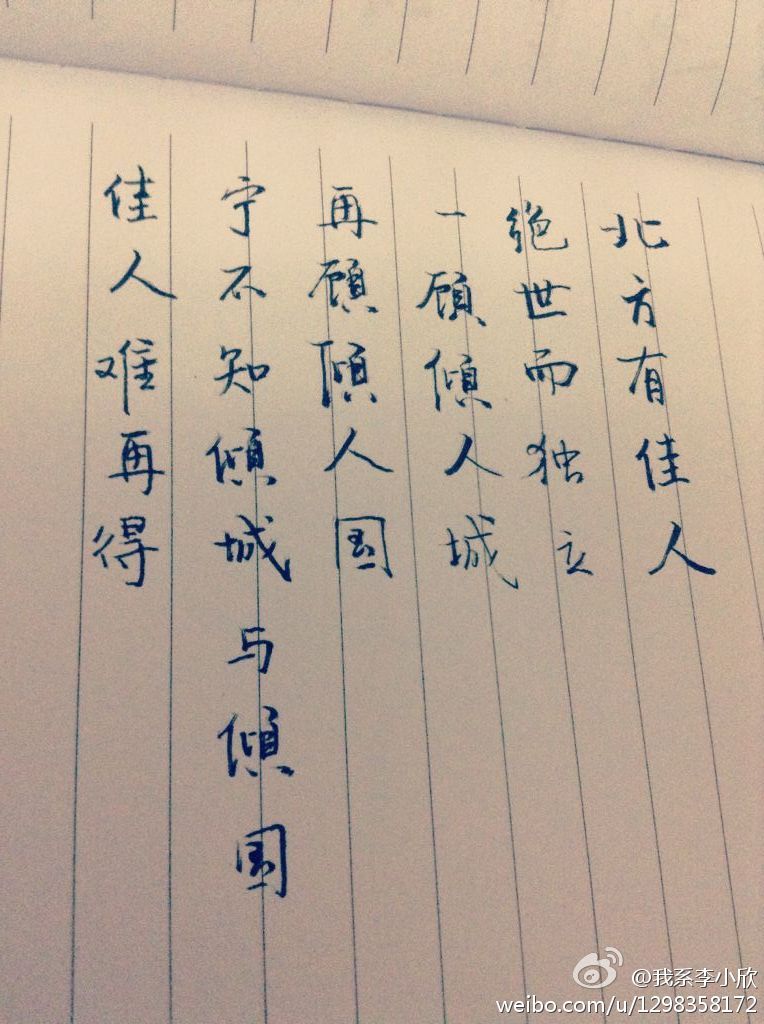 北方有佳人
绝世而独立
一顾倾人城
再顾倾人国
宁不知倾城与倾国
佳人难再得
@我系李小欣
weibo.com/u/1298358172